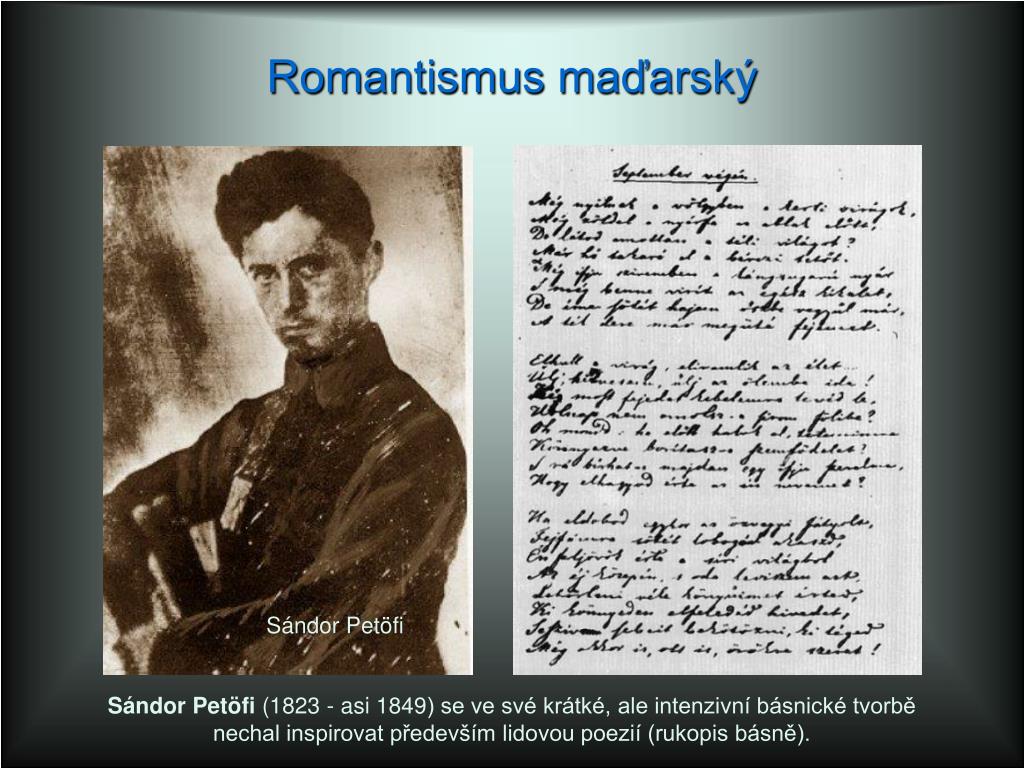 Romantismus maďarský
September végén.
Még nyilnak a völgyben a kerti virágok,
Még zöldel a nyárfa az ablak előtt,
De látod amottan a téli világot?
Már hó takará el a bérczi tetőt.
Még ifju szivemben a lángsugarú nyár
S még benne virít az egész kikelet,
De íme sötét hajam őszbe vegyűl már,
A tél dere már megüté fejemet.
Elhull a virág, eliramlik az élet...
Ülj, hitvesem, ülj az ölembe ide!
Ki most fejedet kebelemre tevéd le,
Holnap nem omolsz-e sirom fölibe?
Oh mondd: ha előbb halok el, tetemimre
Könnyezve borítasz-e szemfödelet?
S rá bírhat-e majdan egy ifju szerelme,
Hogy elhagyod érte az én nevemet?
Ha eldobod egykor az özvegyi fátyolt,
Fejfámra sötét lobogóul akaszd,
Én feljövök érte a síri világból
Az éj közepén, s oda leviszem azt,
Letörleni véle könyűimet érted,
Ki könnyeden elfeledéd hivedet,
S e szív sebeit bekötözni, ki téged
Még akkor is, ott is, örökre szeret!
Sándor Petöfi
Sándor Petöfi (1823 - asi 1849) se ve své krátké, ale intenzivní básnické tvorbě
nechal inspirovat především lidovou poezií (rukopis básně).